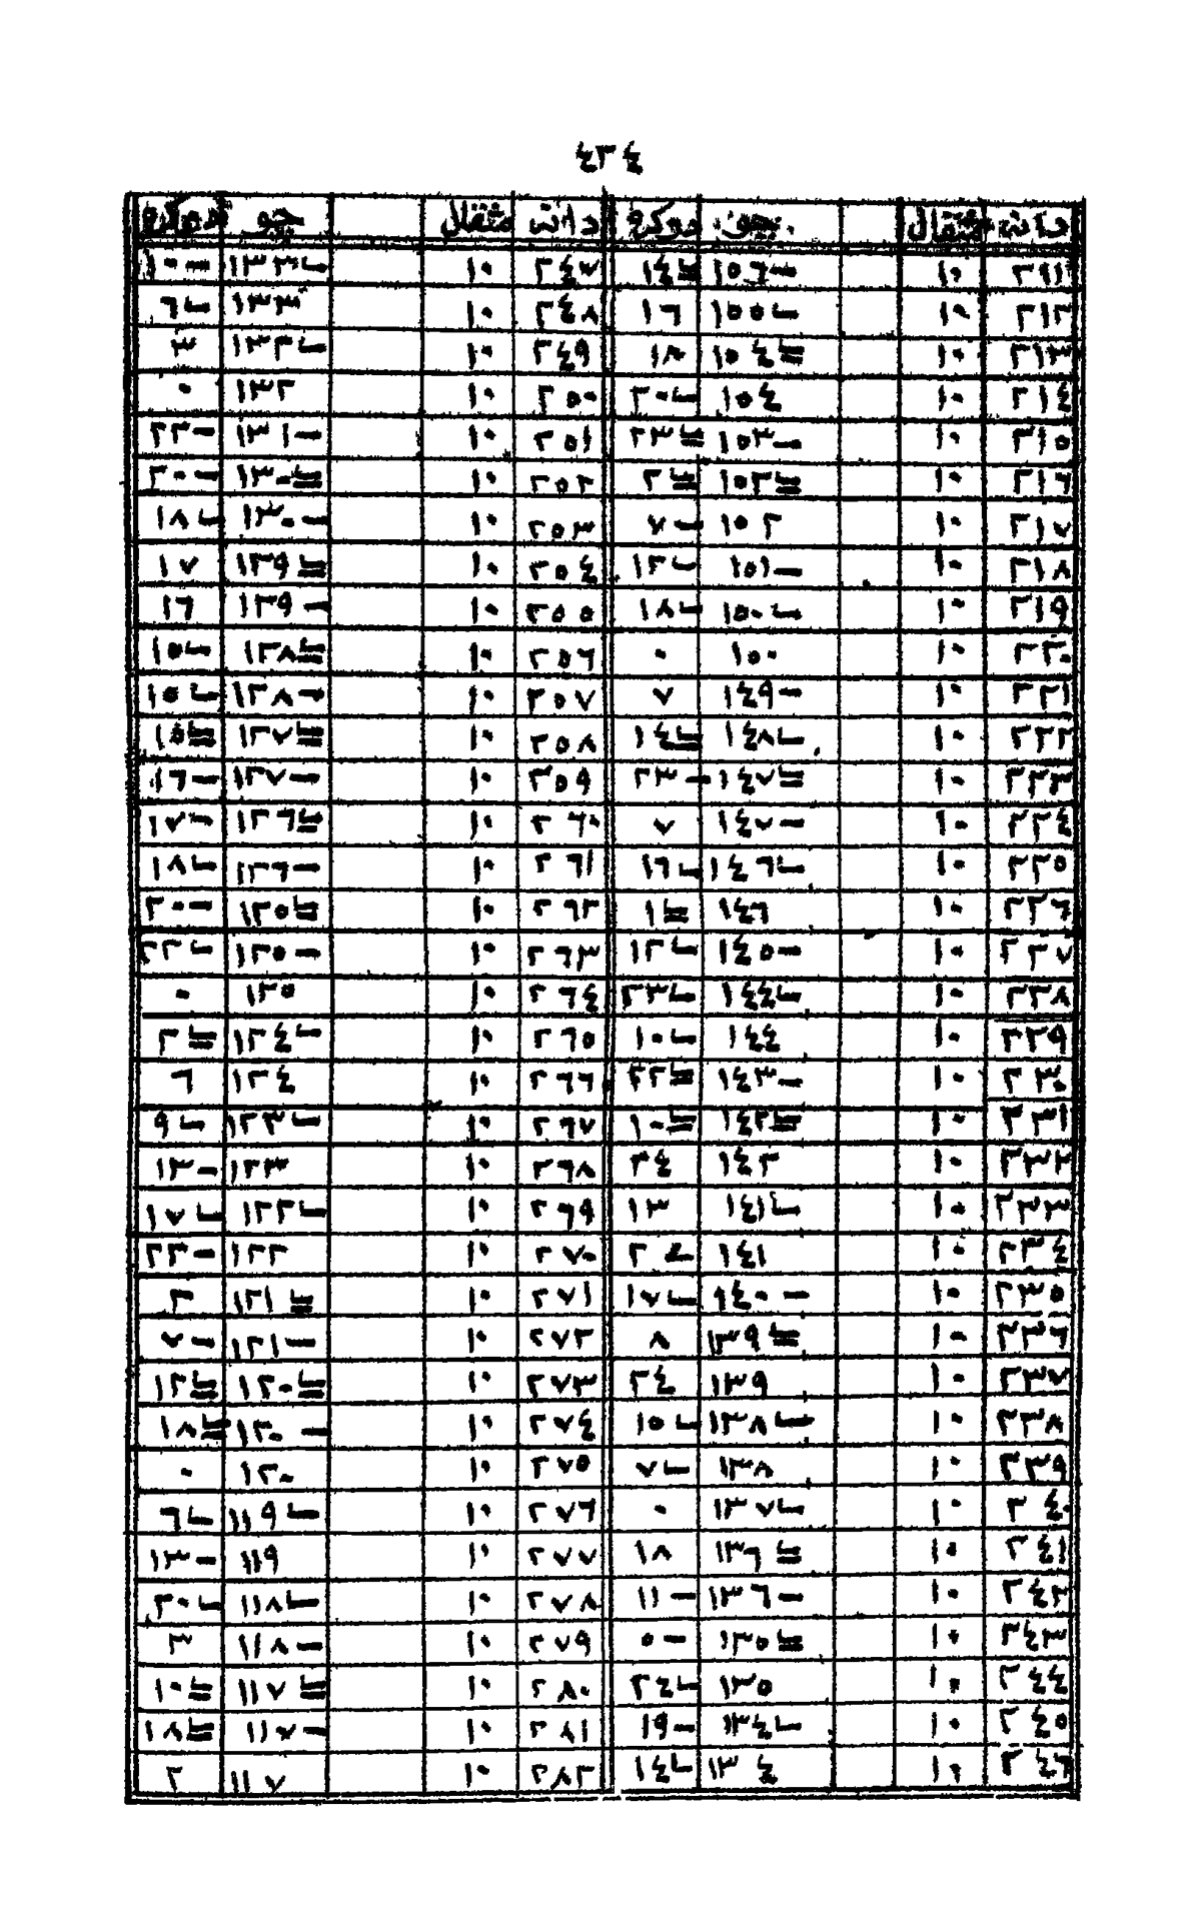 ٤٣٤
دانه مثقال چون دوكره دانه مثقال چو دوكره
٢١١ ١٠ ١٥٦ ١٤ ٢٤٧ ١٠ ١٣٣ ١٠
٢١٢ ١٠ ١٥٥ ١٦ ٢٤٨ ١٠ ١٣٣ ٦
٢١٣ ١٠ ١٥٤ ١٨ ٢٤٩ ١٠ ١٣٢ ٣
٢١٤ ١٠ ١٥٤ ٢٠ ٢٥٠ ١٠ ١٣٢ ٠
٢١٥ ١٠ ١٥٣ ٢٣ ٢٥١ ١٠ ١٣١ ٢٢
٢١٦ ١٠ ١٥٢ ٢ ٢٥٢ ١٠ ١٣٠ ٢٠
٢١٧ ١٠ ١٥٢ ٧ ٢٥٣ ١٠ ١٣٠ ١٨
٢١٨ ١٠ ١٥١ ١٢ ٢٥٤ ١٠ ١٢٩ ١٧
٢١٩ ١٠ ١٥٠ ١٨ ٢٥٥ ١٠ ١٢٩ ١٦
٢٢٠ ١٠ ١٥٠ ٠ ٢٥٦ ١٠ ١٢٨ ١٥
٢٢١ ١٠ ١٤٩ ٧ ٢٥٧ ١٠ ١٢٨ ١٥
٢٢٢ ١٠ ١٤٨ ١٤ ٢٥٨ ١٠ ١٢٧ ١٥
٢٢٣ ١٠ ١٤٧ ٢٣ ٢٥٩ ١٠ ١٢٧ ١٦
٢٢٤ ١٠ ١٤٧ ٧ ٢٦٠ ١٠ ١٢٦ ١٧
٢٢٥ ١٠ ١٤٦ ١٦ ٢٦١ ١٠ ١٢٦ ١٨
٢٢٦ ١٠ ١٤٦ ١ ٢٦٢ ١٠ ١٢٥ ٢٠
٢٢٧ ١٠ ١٤٥ ١٢ ٢٦٣ ١٠ ١٢٥ ٢٢
٢٢٨ ١٠ ١٤٤ ٢٣ ٢٦٤ ١٠ ١٢٥ ٠
٢٢٩ ١٠ ١٤٤ ١٠ ٢٦٥ ١٠ ١٢٤ ٣
٢٣٠ ١٠ ١٤٣ ٢٢ ٢٦٦ ١٠ ١٢٤ ٦
٢٣١ ١٠ ١٤٢ ١٠ ٢٦٧ ١٠ ١٢٣ ٩
٢٣٢ ١٠ ١٤٢ ٢٤ ٢٦٨ ١٠ ١٢٣ ١٣
٢٣٣ ١٠ ١٤١ ١٣ ٢٦٩ ١٠ ١٢٢ ١٧
٢٣٤ ١٠ ١٤١ ٢ ٢٧٠ ١٠ ١٢٢ ٢٢
٢٣٥ ١٠ ١٤٠ ١٧ ٢٧١ ١٠ ١٢١ ٢
٢٣٦ ١٠ ١٣٩ ٨ ٢٧٢ ١٠ ١٢١ ٧
٢٣٧ ١٠ ١٣٩ ٢٤ ٢٧٣ ١٠ ١٢٠ ١٢
٢٣٨ ١٠ ١٣٨ ١٥ ٢٧٤ ١٠ ١٢٠ ١٨
٢٣٩ ١٠ ١٣٨ ٧ ٢٧٥ ١٠ ١٢٠ ٠
٢٤٠ ١٠ ١٣٧ ٠ ٢٧٦ ١٠ ١١٩ ٦
٢٤١ ١٠ ١٣٦ ١٨ ٢٧٧ ١٠ ١١٩ ١٣
٢٤٢ ١٠ ١٣٦ ١١ ٢٧٨ ١٠ ١١٨ ٢٠
٢٤٣ ١٠ ١٣٥ ٥ ٢٧٩ ١٠ ١١٨ ٣
٢٤٤ ١٠ ١٣٥ ٢٤ ٢٨٠ ١٠ ١١٧ ١٠
٢٤٥ ١٠ ١٣٤ ١٩ ٢٨١ ١٠ ١١٧ ١٨
٢٤٦ ١٠ ١٣٤ ١٤ ٢٨٢ ١٠ ١١٧ ٢